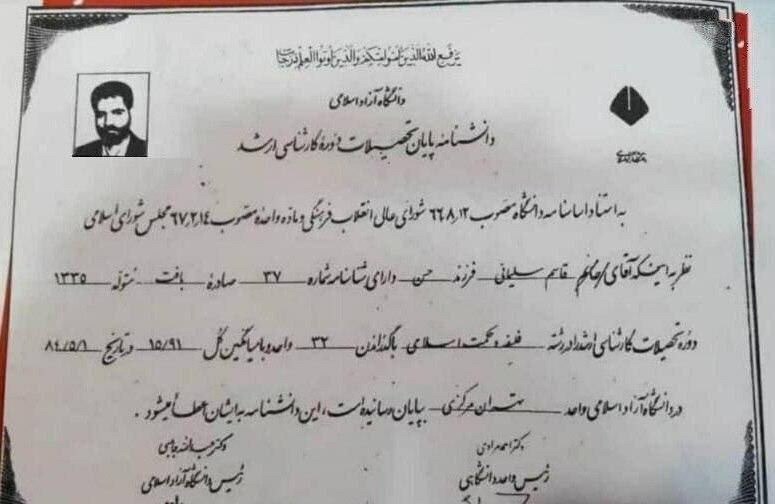 یرفع الله الذین آمنوا منکم والذین اوتوا العلم درجات
دانشگاه آزاد اسلامی
دانشنامه پایان تحصیلات دوره کارشناسی ارشد
به استناد اساسنامه دانشگاه مصوب ۶۶٫۸٫۱۲ شورای عالی انقلاب فرهنگی و ماده واحده مصوب ۶۷٫۲٫۱۴ مجلس شورای اسلامی
نظر به اینکه آقای/خانم قاسم سلیمانی فرزند حسن دارای شناسنامه شماره ۳۷ صادره بافت متولد ۱۳۳۵
دوره تحصیلات کارشناسی ارشد را در رشته فلسفه و حکمت اسلامی باگذراندن ۳۲ واحد و با میانگین کل ۱۵/۹۱ و در تاریخ ۸۴/۵/۱
در دانشگاه آزاد اسلامی واحد تهران مرکزی بپایان رسانیده است، این دانشنامه به ایشان اعطا میشود.
دکتر احمد مرادی
رئیس واحد دانشگاهی
دکتر عبدالله جاسبی
رئیس دانشگاه آزاد اسلامی